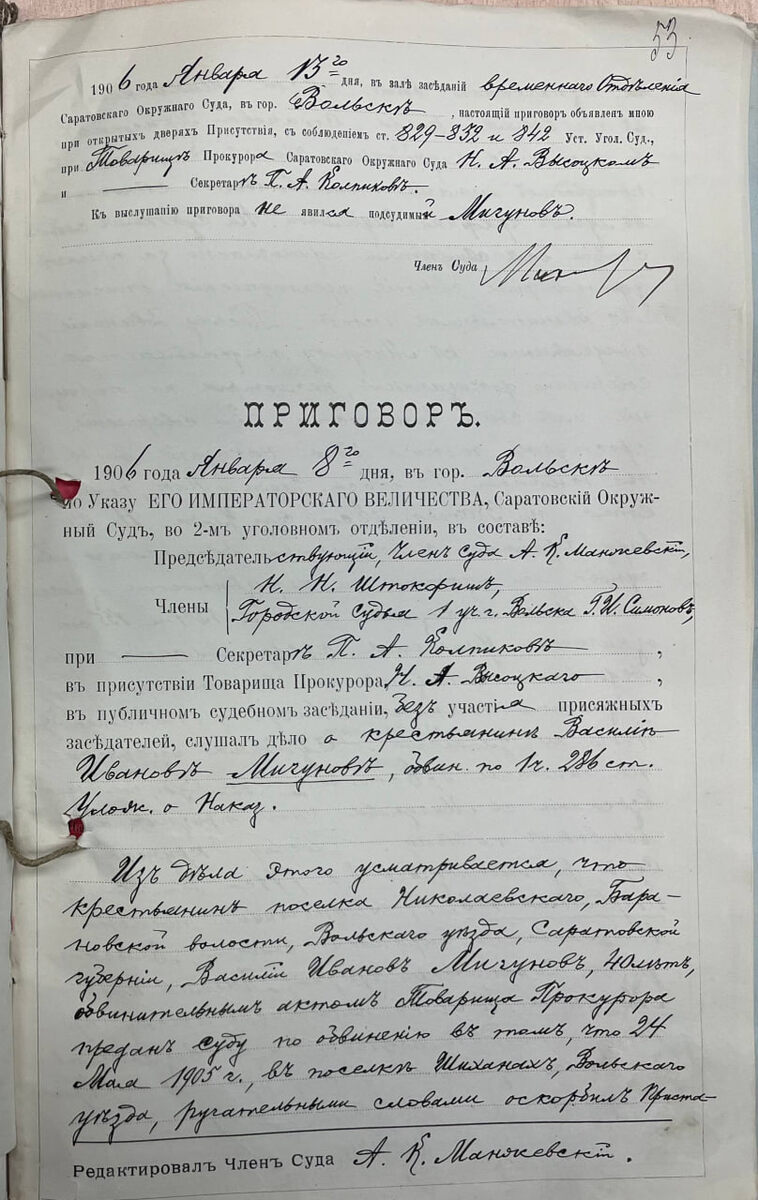 53
1906 года Января 13го дня, въ залѣ засѣданій временнаго Отдѣленія
Саратовскаго Окружнаго Суда, въ гор. Вольскѣ, настоящій приговоръ объявленъ мною
при открытыхъ дверяхъ Присутствія, съ соблюденіемъ ст. 829-832 и 842 Уст. Угол. Суд.,
при Товарищѣ Прокурора Саратовскаго Окружнаго Суда Н. А. Высоцкомъ
и — Секретарѣ П. А. Колпиковѣ.
Къ выслушанію приговора не явился подсудимый Мигуновъ.
Членъ Суда
ПРИГОВОРЪ.
1906 года Января 8го дня, въ гор. Вольскѣ
по Указу ЕГО ИМПЕРАТОРСКАГО ВЕЛИЧЕСТВА, Саратовскій Окруж-
ный Судъ, во 2-мъ уголовномъ отдѣленіи, въ составѣ:
Предсѣдательствующій, Членъ Суда А. К. Манжевскій,
Н. Н. Штокфишъ,
Члены Городской Судья 1 уч. г. Вольска Г. И. Симоновъ,
при — Секретарѣ П. А. Колпиковѣ,
въ присутствіи Товарища Прокурора Н. А. Высоцкаго,
въ публичномъ судебномъ засѣданіи, безъ участія присяжныхъ
засѣдателей, слушалъ дѣло о крестьянинѣ Василіѣ
Ивановѣ Мигуновѣ, обвин. по 1 ч. 286 ст.
Улож. о Наказ.
Изъ дѣла этого усматривается, что
крестьянинъ поселка Николаевскаго, Бара-
новской волости, Вольскаго уѣзда, Саратовской
губерніи, Василій Ивановъ Мигуновъ, 40 лѣтъ,
обвинительнымъ актомъ Товарища Прокурора
преданъ суду по обвиненію въ томъ, что 24
Мая 1905 г., въ поселкѣ Шиханахъ, Вольскаго
уѣзда, ругательными словами оскорбилъ Приста-
Редактировалъ Членъ Суда А. К. Манжевскій.